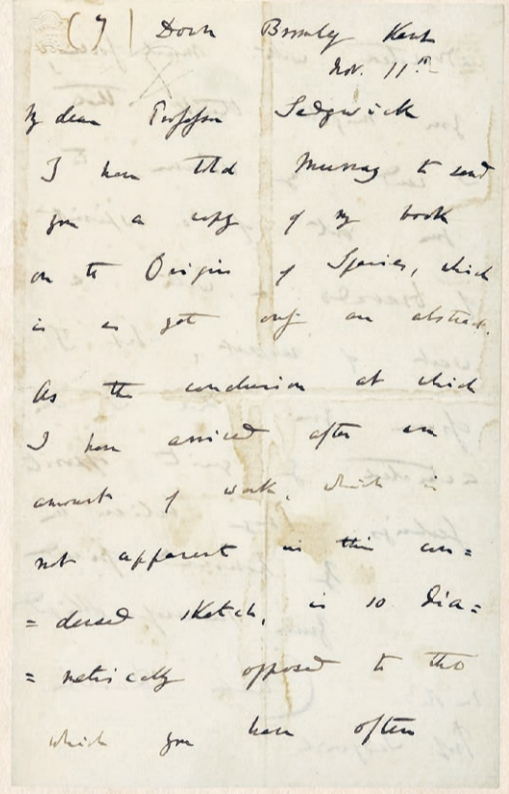 (7) Down Bromley Kent
Nov. 11th
My dear Professor Sedgwick
I have told Murray to send
you a copy of my book
on the Origin of Species, which
is as yet only an abstract.
As the conclusion at which
I have arrived after an
amount of work, which is
not apparent in this con=
=densed sketch, is so dia=
=metrically opposed to that
which you have often